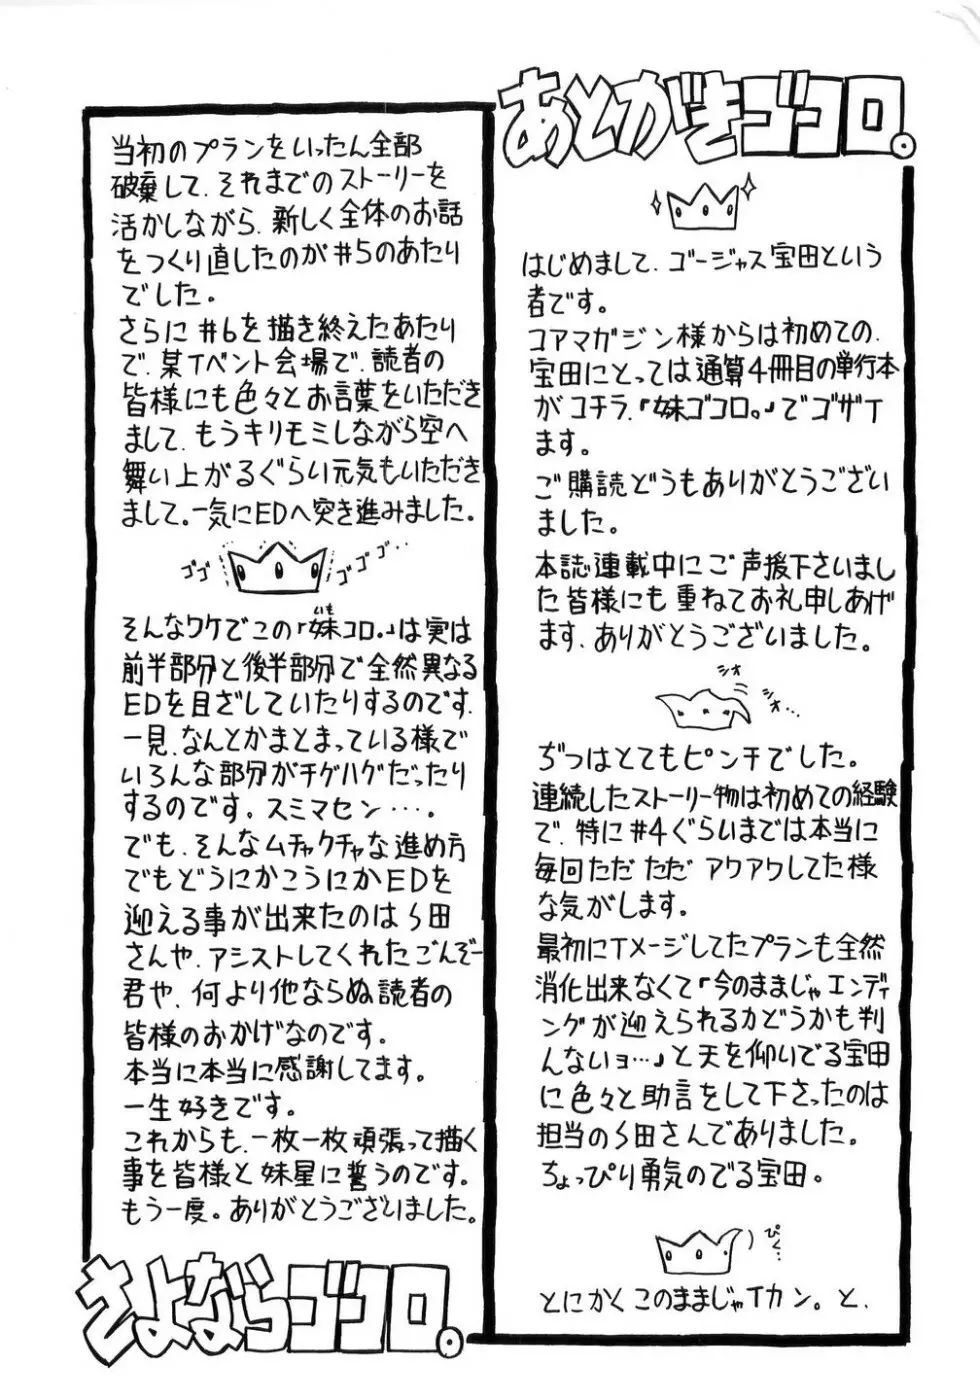 あとがきゴコロ。
はじめまして、ゴージャス宝田という
者です。
コアマガジン様からは初めての、
宝田にとっては通算4冊目の単行本
がコチラ、『妹ゴコロ。』でゴザイ
ます。
ご購読どうもありがとうござい
ました。
本誌連載中にご声援下さいまし
た皆様にも重ねてお礼申しあげ
ます、ありがとうございました。
シオ シオ…
ぢつはとてもピンチでした。
連続したストーリー物は初めての経験
で、特に#4ぐらいまでは本当に
毎回ただただアワアワしてた様
な気がします。
最初にイメージしてたプランも全然
消化出来なくて『今のままじゃエンディ
ングが迎えられるかどうかも判
んないョ…』と天を仰いでる宝田
に色々と助言をして下さったのは
担当のS田さんでありました。
ちょっぴり勇気のでる宝田。
ぴく…
とにかくこのままじゃイカン。と、
当初のプランをいったん全部
破棄して、それまでのストーリーを
活かしながら、新しく全体のお話
をつくり直したのが#5のあたり
でした。
さらに#6を描き終えたあたり
で、某イベント会場で、読者の
皆様にも色々とお言葉をいただき
まして、もうキリモミしながら空へ
舞い上がるぐらい元気もいただき
まして。一気にEDへ突き進みました。
ゴゴゴ ゴゴゴ…
そんなワケでこの『妹コロ。』は実は
いも
前半部分と後半部分で全然異なる
EDを目ざしていたりするのです。
一見、なんとかまとまっている様で
いろんな部分がチグハグだったり
するのです。スミマセン…。
でも、そんなムチャクチャな進め方
でもどうにかこうにかEDを
迎える事が出来たのはS田
さんや、アシストしてくれたごんぞー
君や、何より他ならぬ読者の
皆様のおかげなのです。
本当に本当に感謝してます。
一生好きです。
これからも、一枚一枚頑張って描く
事を皆様と妹星に誓うのです。
もう一度。ありがとうございました。
さよならゴコロ。